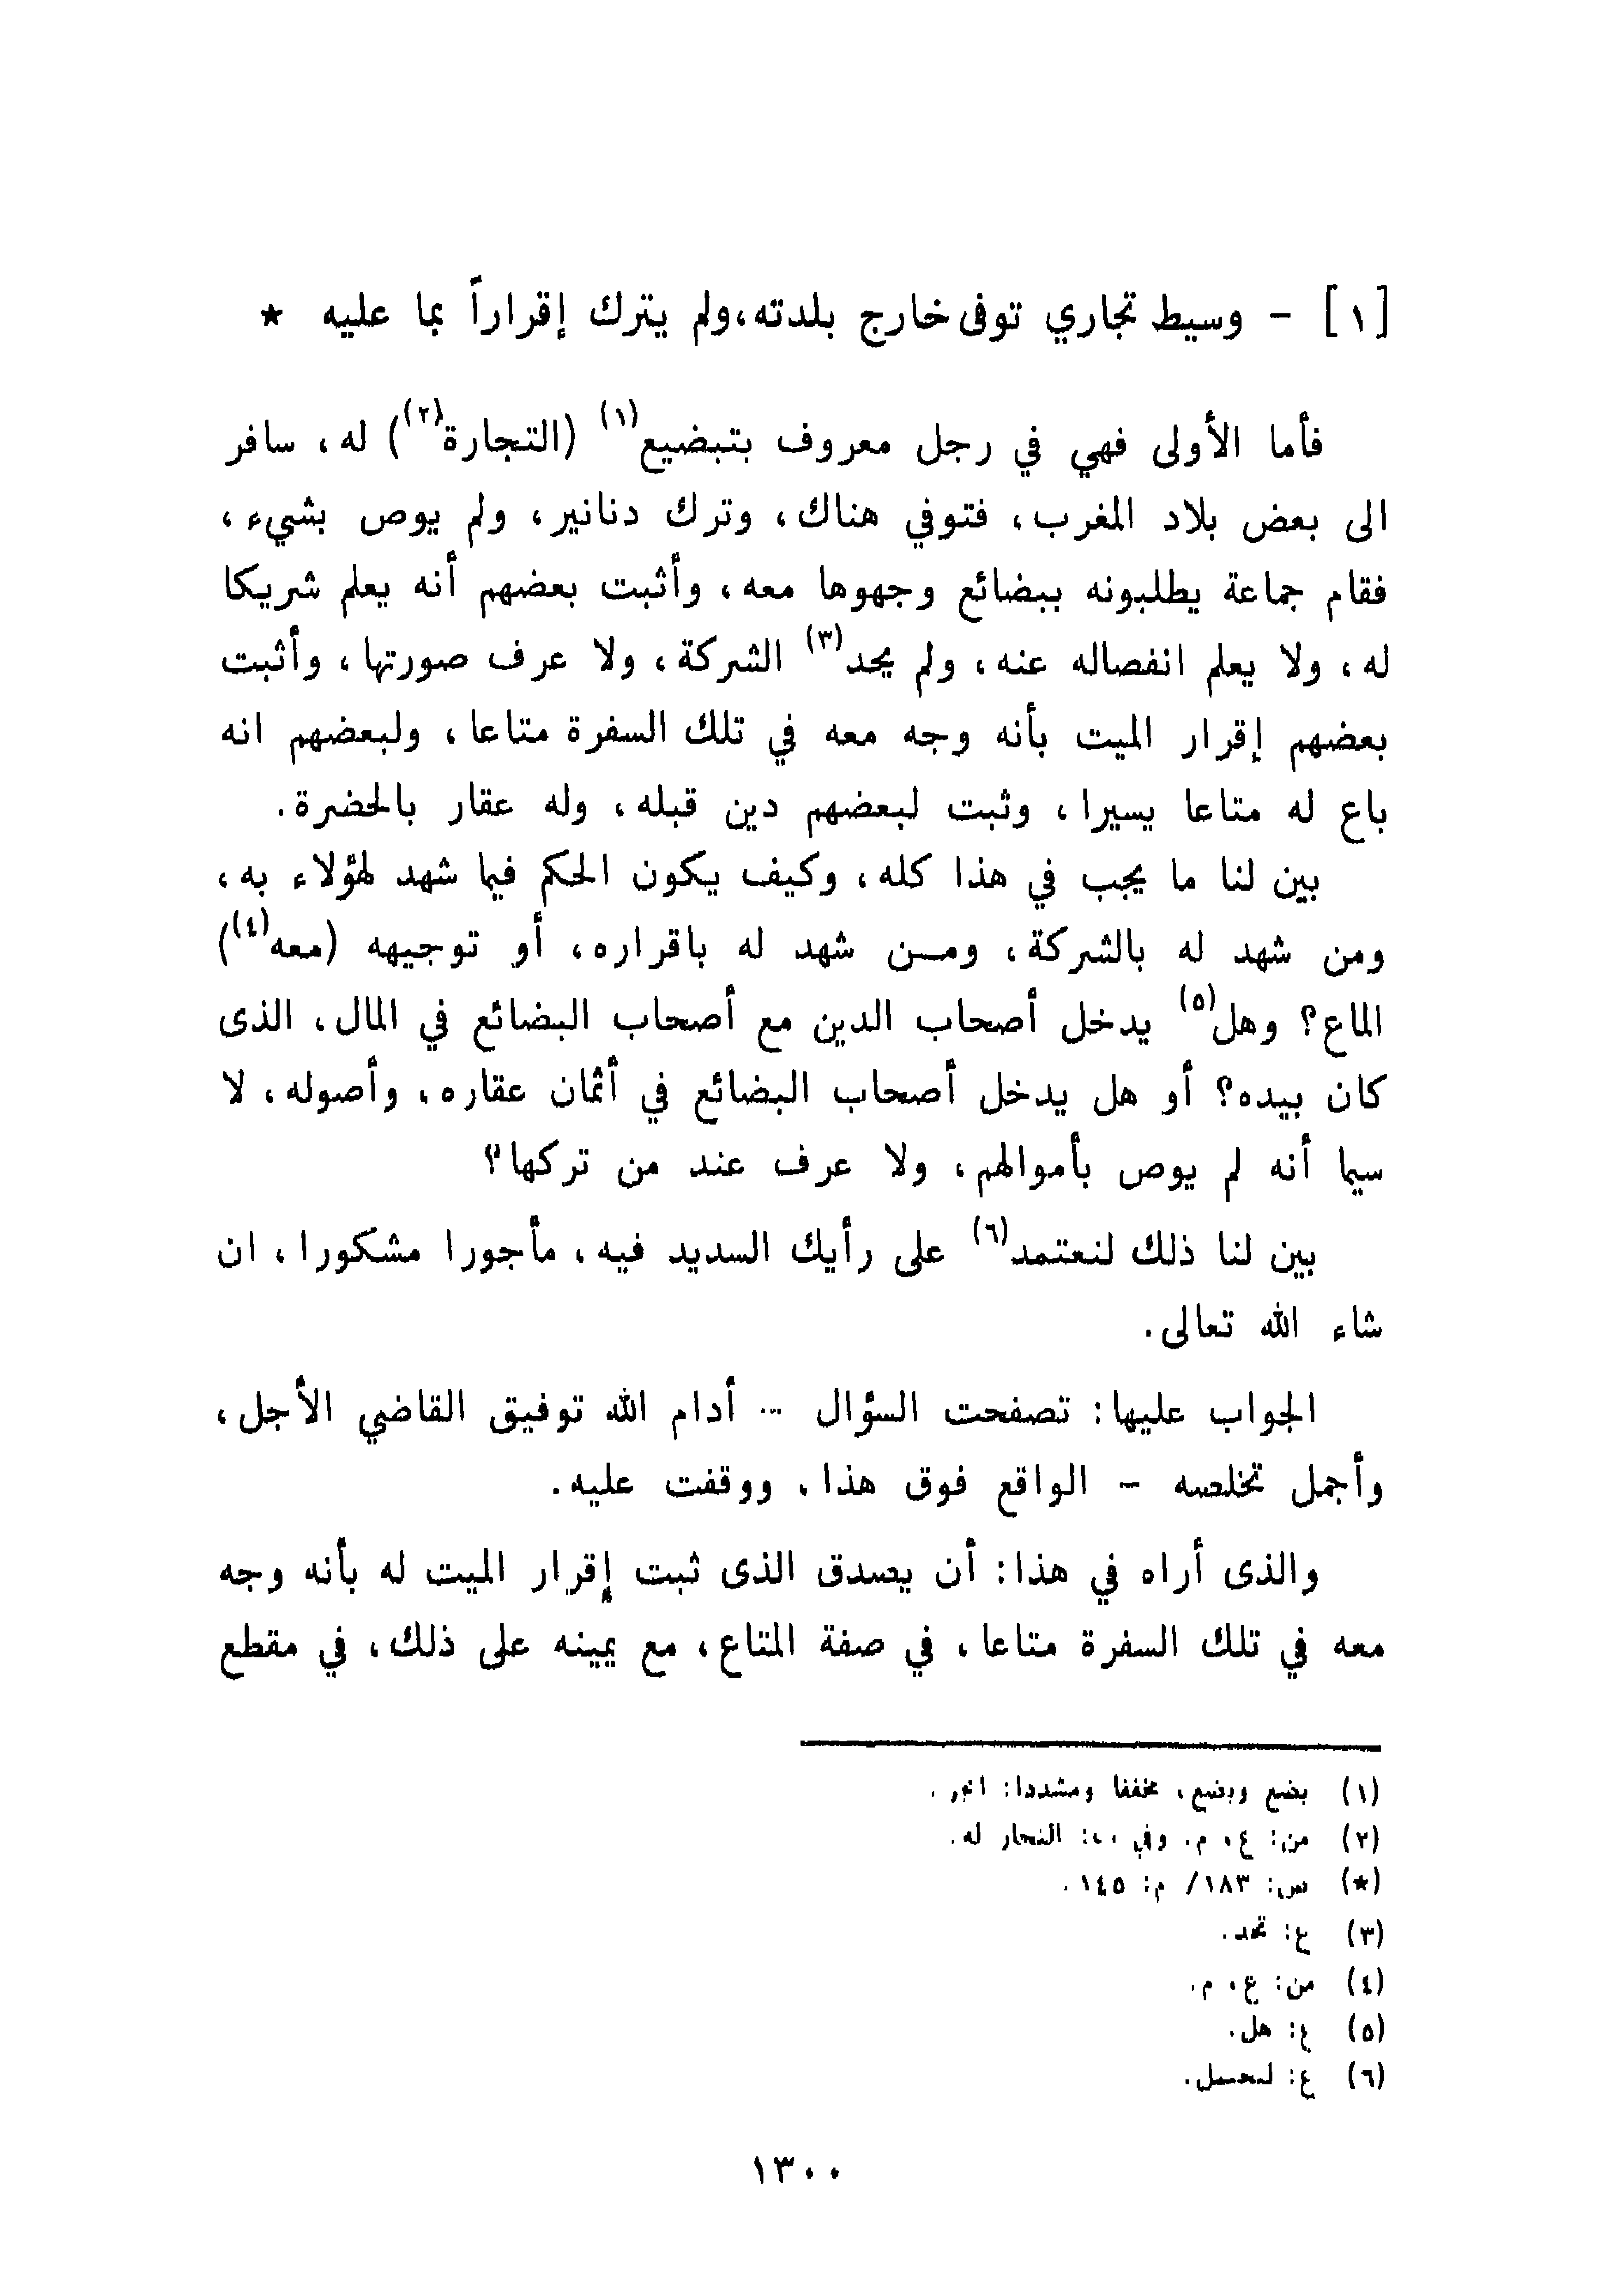 [١] - وسيط تجاري توفى خارج بلدته،ولم يترك إقراراً بما عليه *
فأما الأولى فهي في رجل معروف بتبضيع(١) (التجارة(٢)) له، سافر
الى بعض بلاد المغرب، فتوفي هناك، وترك دنانير، ولم يوص بشيء،
فقام جماعة يطلبونه ببضائع وجهوها معه، وأثبت بعضهم أنه يعلم شريكا
له، ولا يعلم انفصاله عنه، ولم يحد(٣) الشركة، ولا عرف صورتها، وأثبت
بعضهم إقرار الميت بأنه وجه معه في تلك السفرة متاعا، ولبعضهم انه
باع له متاعا يسيرا، وثبت لبعضهم دين قبله، وله عقار بالحضرة.
بين لنا ما يجب في هذا كله، وكيف يكون الحكم فيما شهد لهؤلاء به،
ومن شهد له بالشركة، ومـن شهد له باقراره، أو توجيهه (معه(٤))
الماع؟ وهل(٥) يدخل أصحاب الدين مع أصحاب البضائع في المال، الذى
كان بيده؟ أو هل يدخل أصحاب البضائع في أثمان عقاره، وأصوله، لا
سيما أنه لم يوص بأموالهم، ولا عرف عند من تركها؟
بين لنا ذلك لنعتمد(٦) على رأيك السديد فيه، مأجورا مشكورا، ان
شاء الله تعالى.
الجواب عليها: تصفحت السؤال - أدام الله توفيق القاضي الأجل،
وأجمل تخلصه - الواقع فوق هذا، ووقفت عليه.
والذى أراه في هذا: أن يصدق الذى ثبت إقرار الميت له بأنه وجه
معه في تلك السفرة متاعا، في صفة المتاع، مع يمينه على ذلك، في مقطع
(١) بضع وبضع، مخففا ومشددا: اتجر.
(٢) من: ع، م. وفي : التجار له.
(*) س: ١٨٣/ م: ١٤٥.
(٣) ع: تحد.
(٤) من: ع، م.
(٥) ع: هل.
(٦) ع:
١٣٠٠